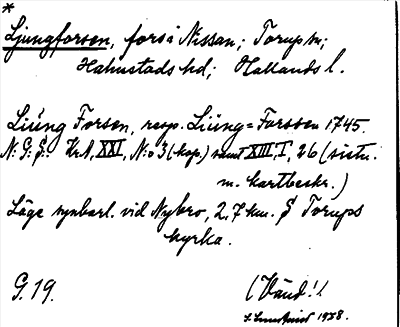 *
Ljungforsen, fors i Nissan; Torup sn;
Halmstads hd; Hallands l.
Liúng Forsen, resp. Liúng=Forssen 1745.
N: G: S: Kr. A, XXI, N:o 3 (kop.) samt XIII, I, 26 (sistn.
m. kartbeskr.)
Läge synbarl. vid Nybro, 2,7 km. S Torups
kyrka.
G. 19.
(Vänd!)
1938.